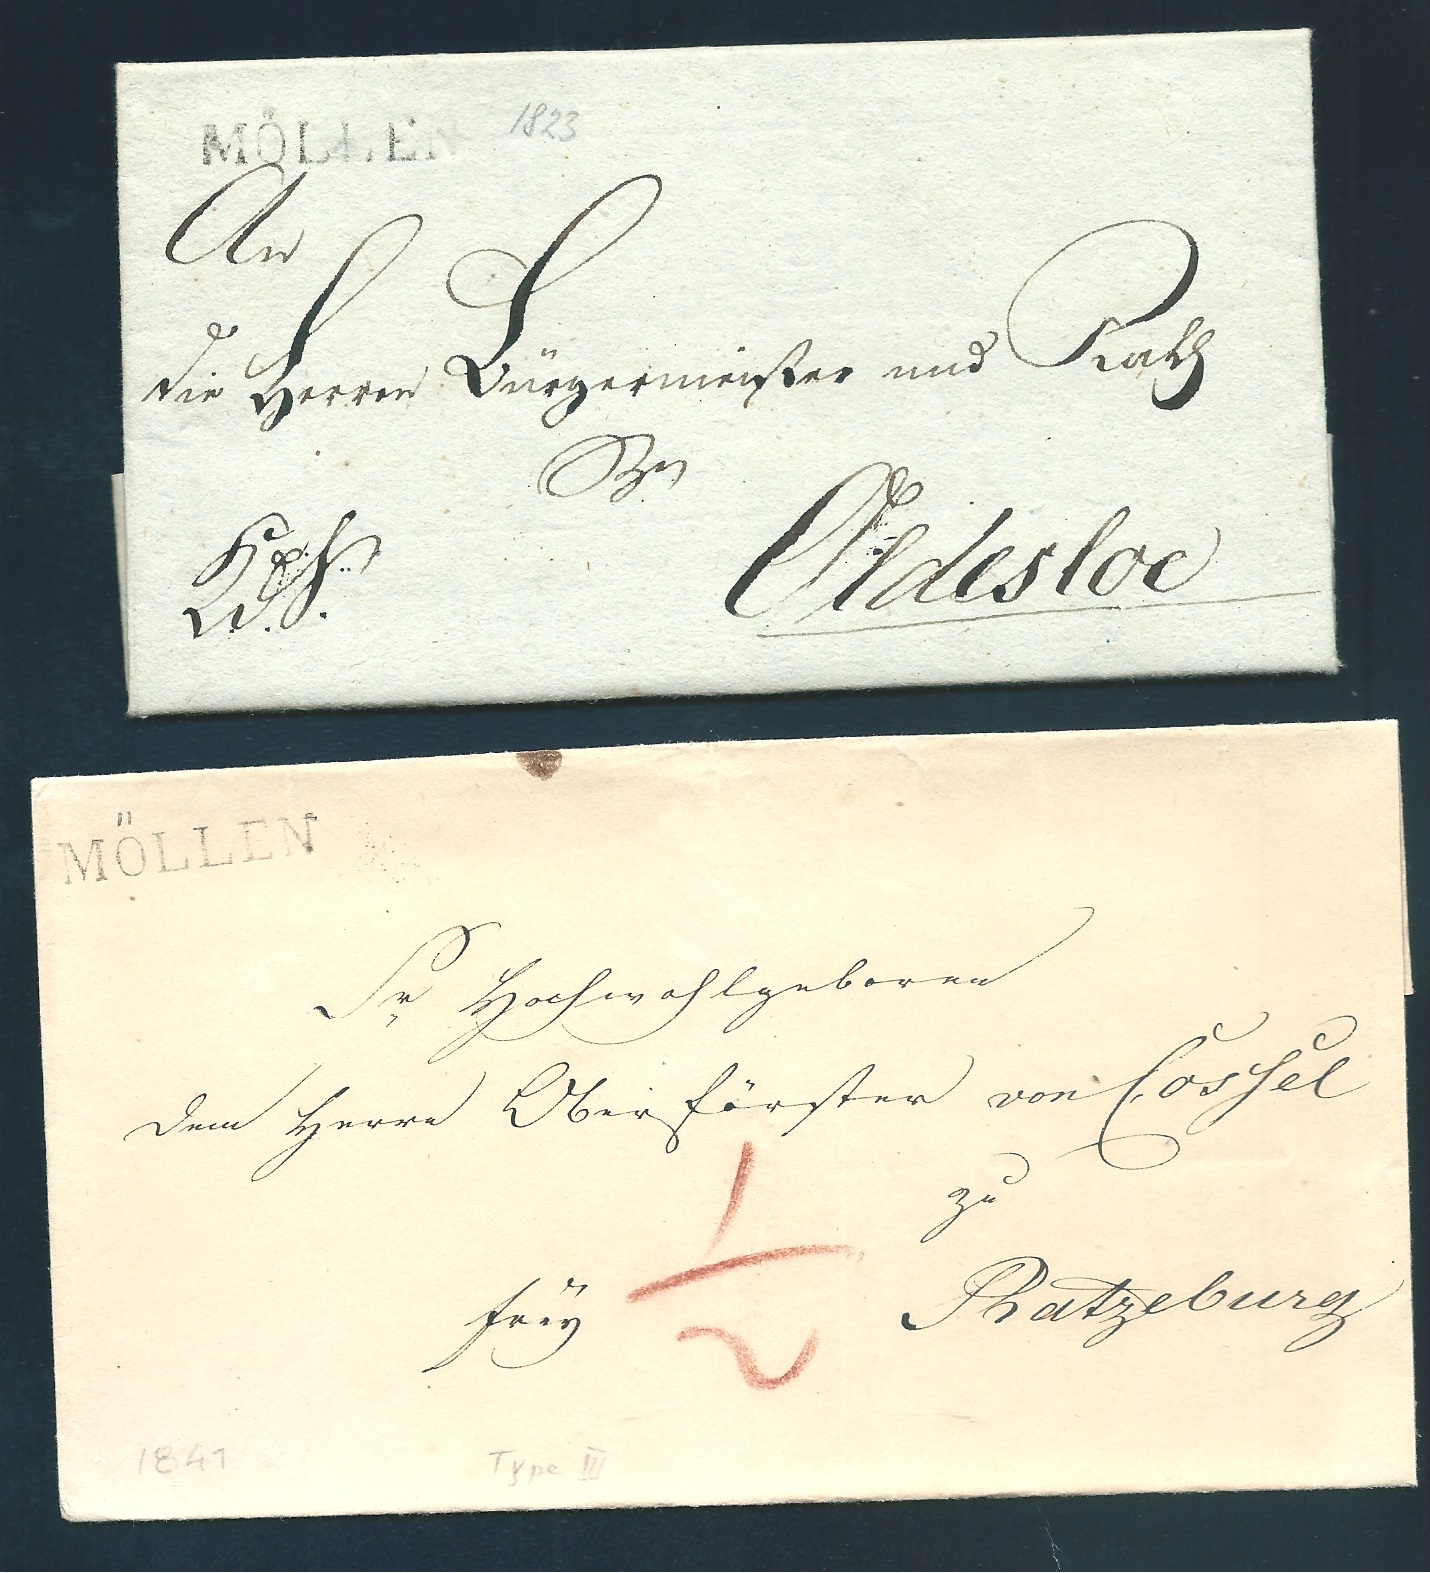 MÖLLEN 1823
An
die Herren Bürgermeister und Rath
Zu
Oldesloe
MÖLLEN
Sr Hochwohlgeboren
dem Herrn Oberförster von Cossel
zu
frey
Ratzeburg
1841 Type III